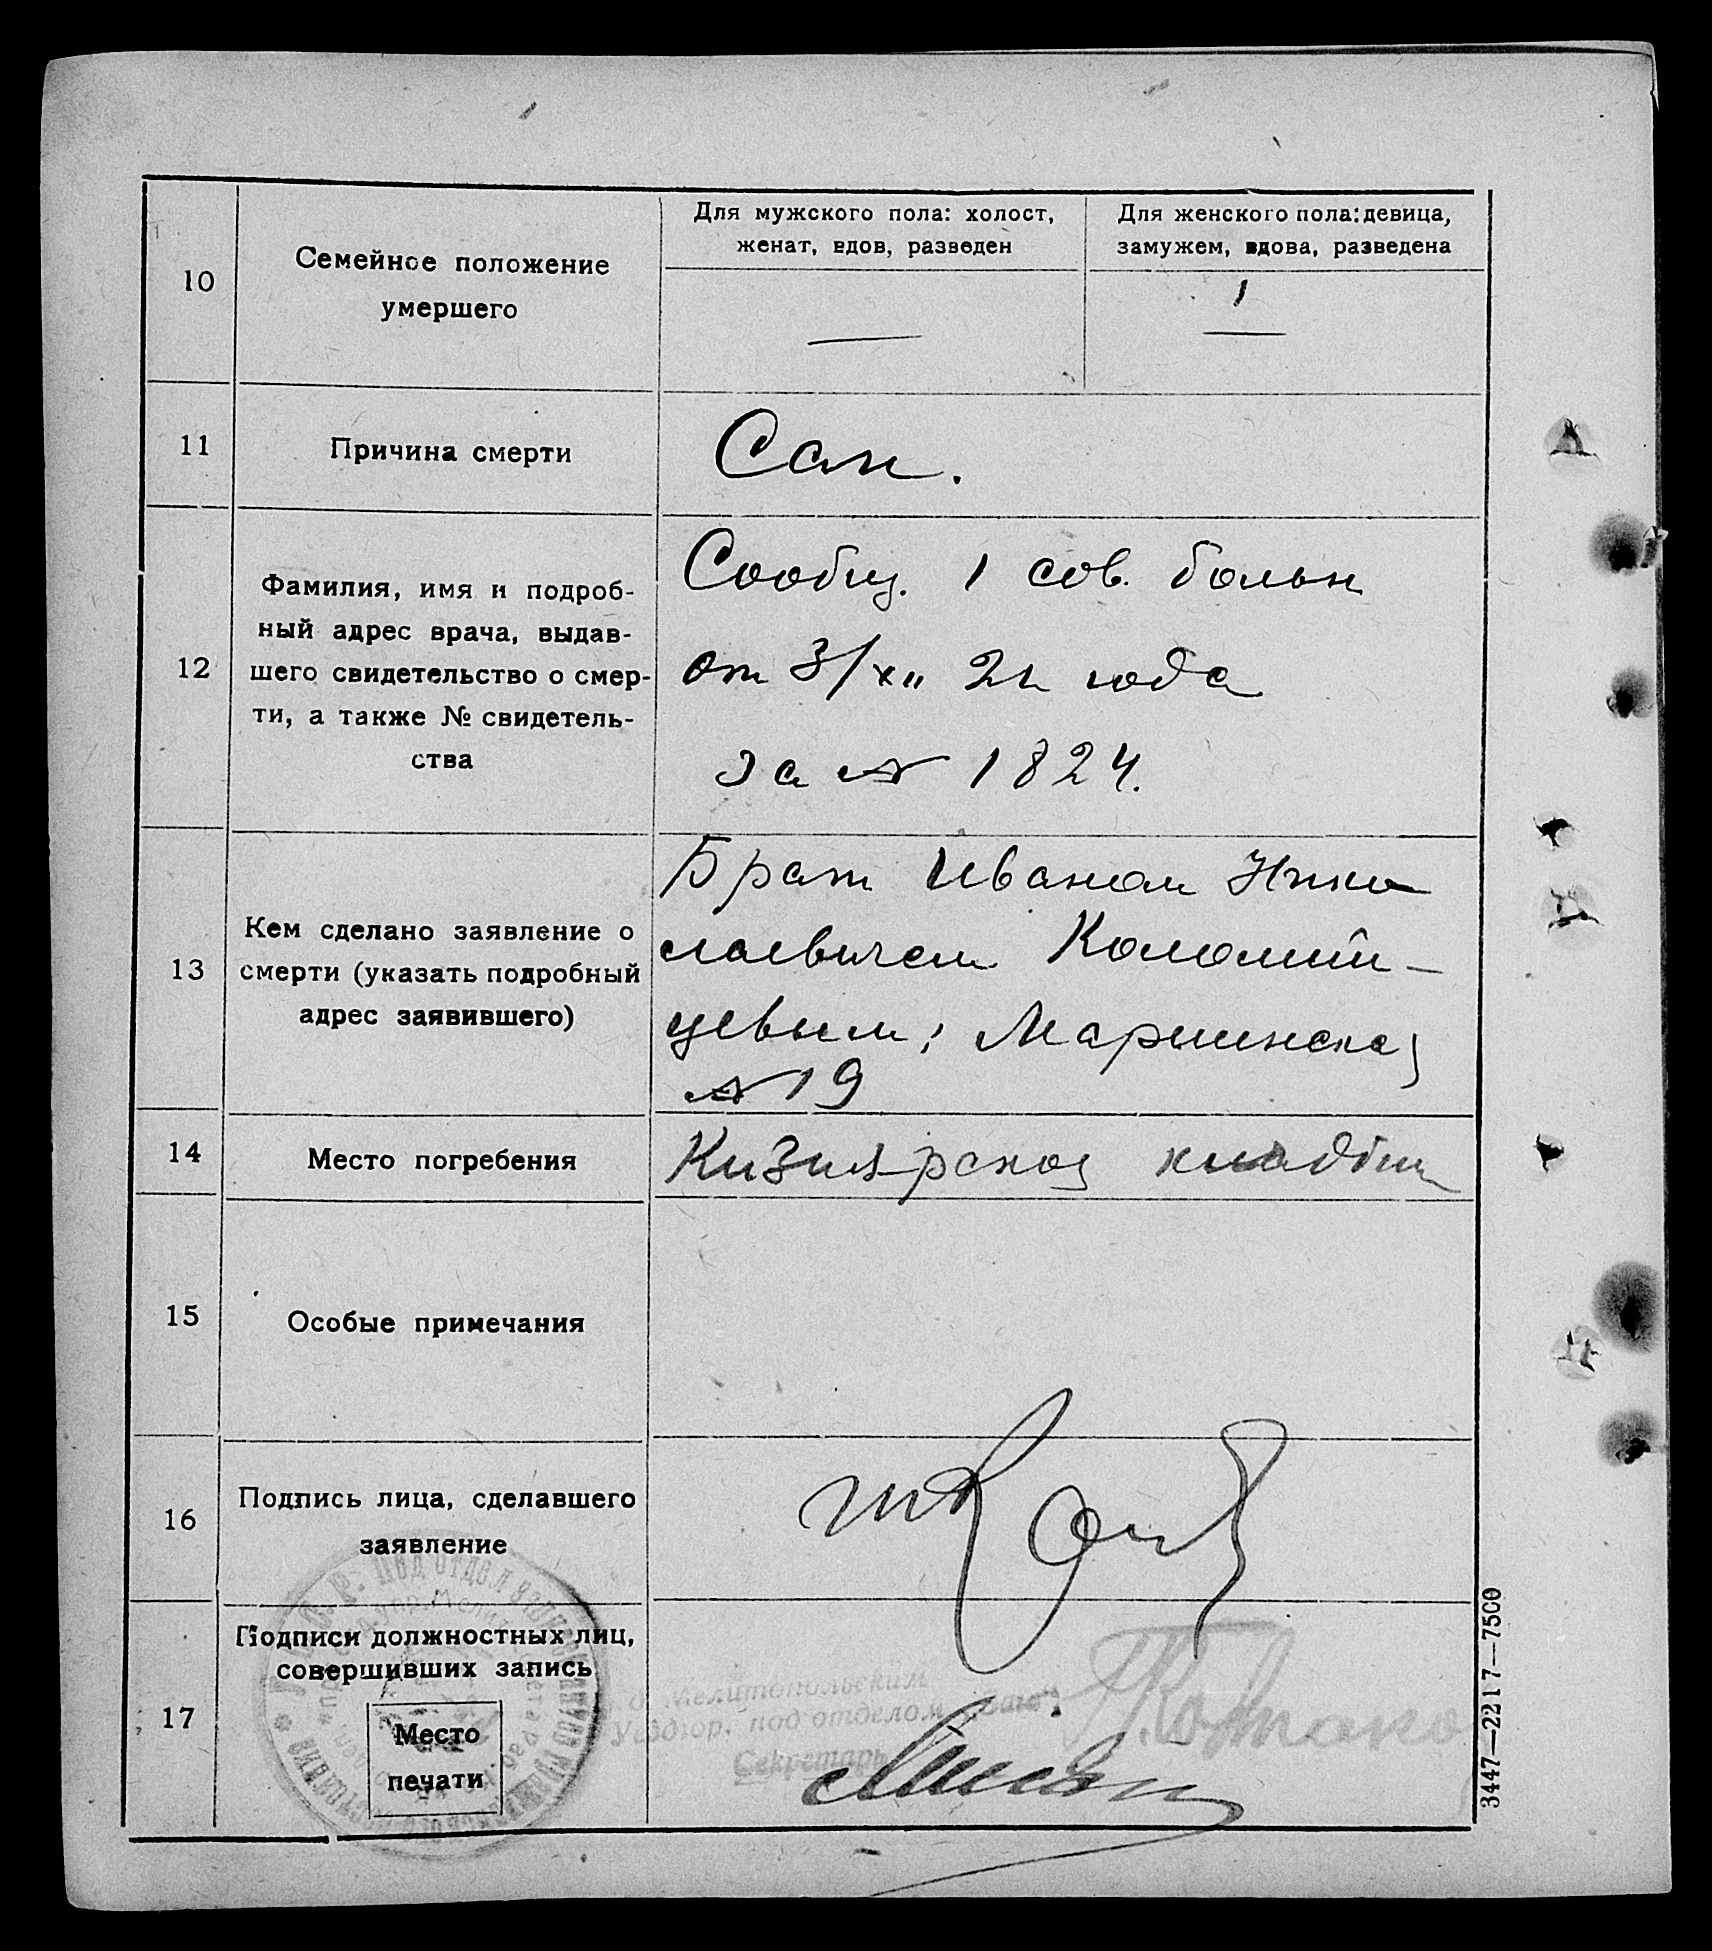 10
Семейное положение
умершего
Для мужского пола: холост,
женат, вдов, разведен
Для женского пола: девица,
замужем, вдова, разведена
11
Причина смерти
Сап.
12
Фамилия, имя и подроб-
ный адрес врача, выдав-
шего свидетельство о смер-
ти, а также № свидетель-
ства
Сообщ. 1 сов. больн
от 3/XII 21 года
за № 1824.
13
Кем сделано заявление о
смерти (указать подробный
адрес заявившего)
Брат Иваном Нико
лаевичем Коломий-
цевым;
№ 19
14
Место погребения
Кизиярское кладбищ
15
Особые примечания
16
Подпись лица, сделавшего
заявление
17
Подписи должностных лиц,
совершивших запись
Место
печати
Мелитопольским
под отделом
Секретарь
3447—2217—7500